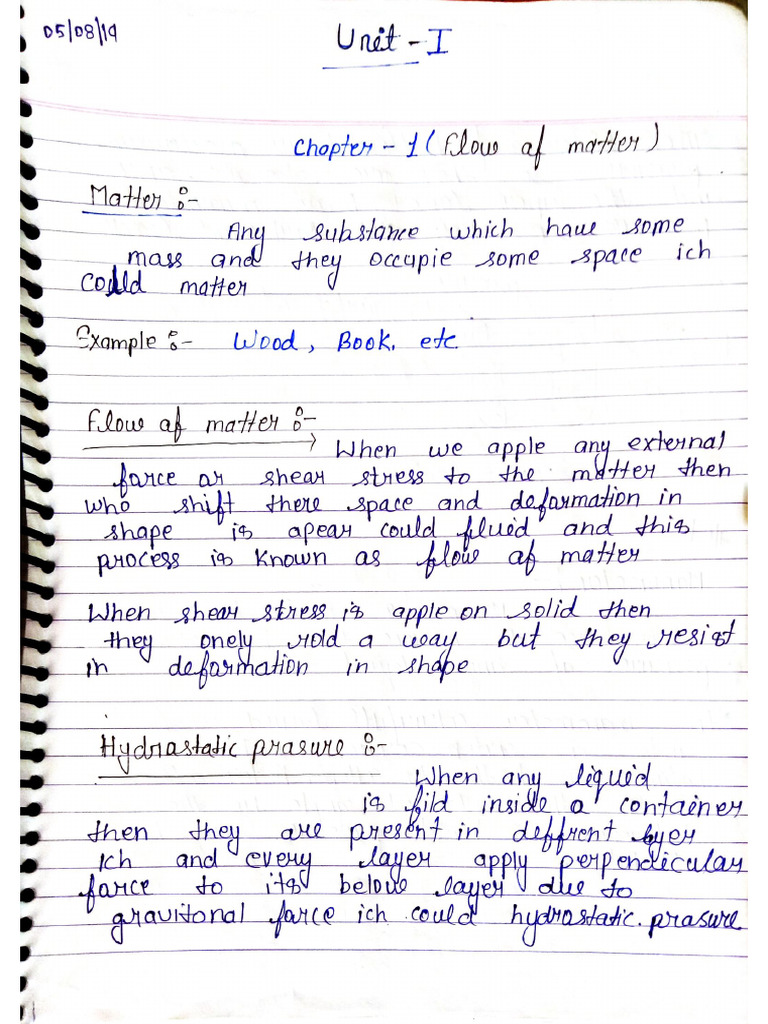 05/08/19
Unit - I
Chapter - 1 (Flow of matter)
Matter :-
Any substance which have some
mass and they occupie some space ich
could matter
Example :- Wood, Book, etc.
Flow of matter :-
When we apple any external
farce or shear stress to the matter then
who shift there space and deformation in
shape is apear could fluid and this
process is known as flow of matter
When shear stress is apple on solid then
they onely rold a way but they resist
in deformation in shape
Hydrastatic prasure :-
When any liquid
is fild inside a container
then they are present in deffrent layer
ich and every layer apply perpendicular
farce to its below layer due to
gravitonal farce ich could hydrastatic prasure